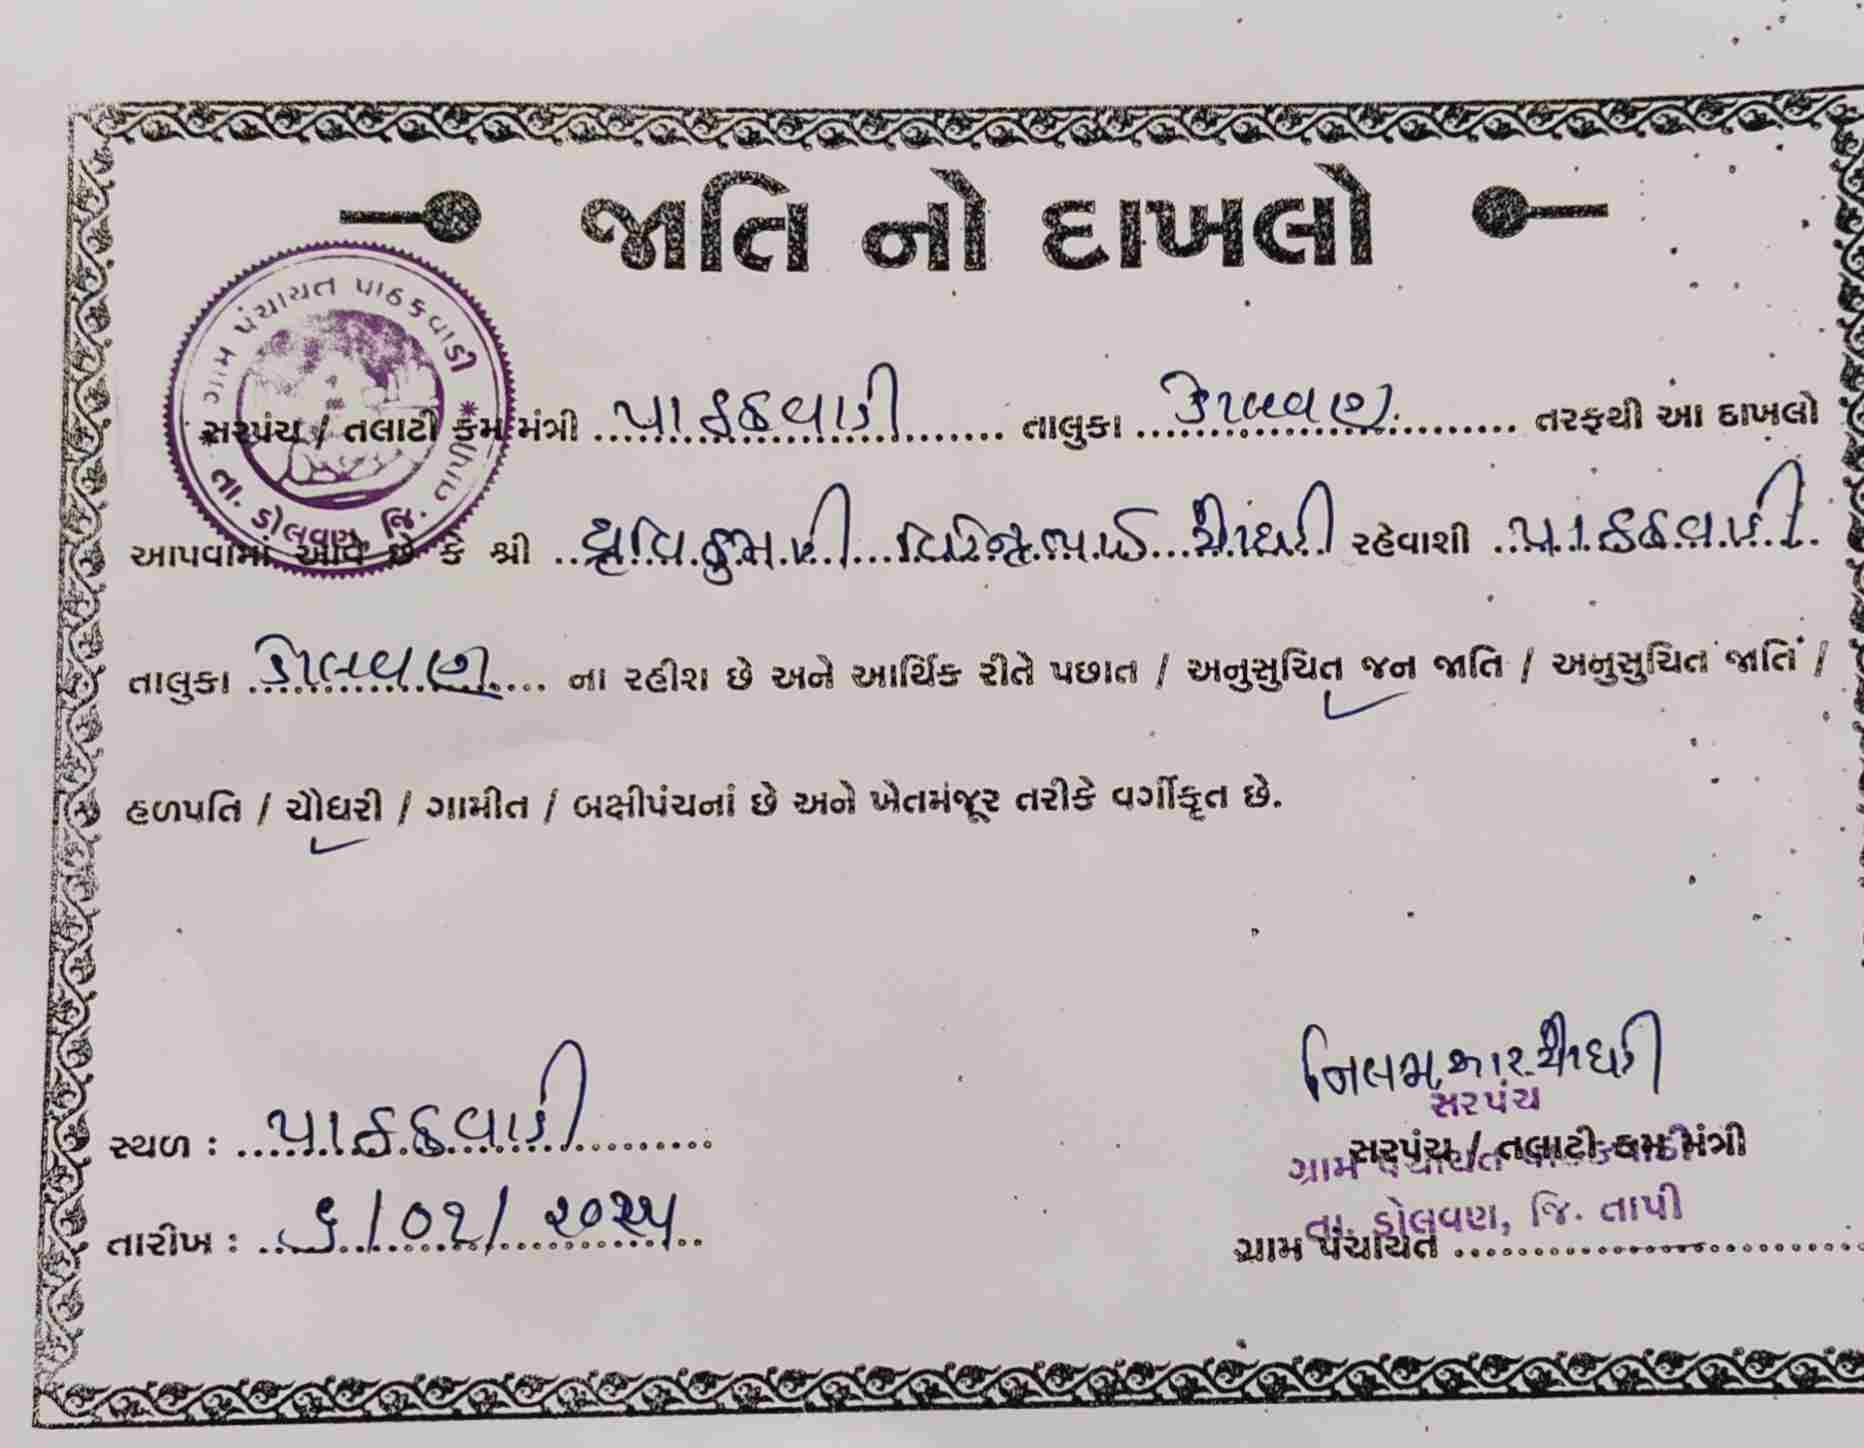 જાતિ નો દાખલો
ગ્રામ પંચાયત પાઠકવાડી * તા. ડોલવણ, જિ. તાપી *
સરપંચ / તલાટી કમ મંત્રી પાઠકવાડી તાલુકા ડોલવણ તરફથી આ દાખલો
આપવામાં આવે છે કે શ્રી ધ્રુવિકુમારી વિપિનભાઈ ચૌધરી રહેવાશી પાઠકવાડી
તાલુકા ડોલવણ ના રહીશ છે અને આર્થિક રીતે પછાત / અનુસુચિત જન જાતિ / અનુસુચિત જાતિ /
હળપતિ / ચૌધરી / ગામીત / બક્ષીપંચનાં છે અને ખેતમંજૂર તરીકે વર્ગીકૃત છે.
નિલમ આર ચૌધરી
સરપંચ
સ્થળ : પાઠકવાડી
સરપંચ / તલાટી કમ મંત્રી
ગ્રામ પંચાયત પાઠકવાડી
તા. ડોલવણ, જિ. તાપી
તારીખ : ૬/૦૨/૨૦૨૫
ગ્રામ પંચાયત